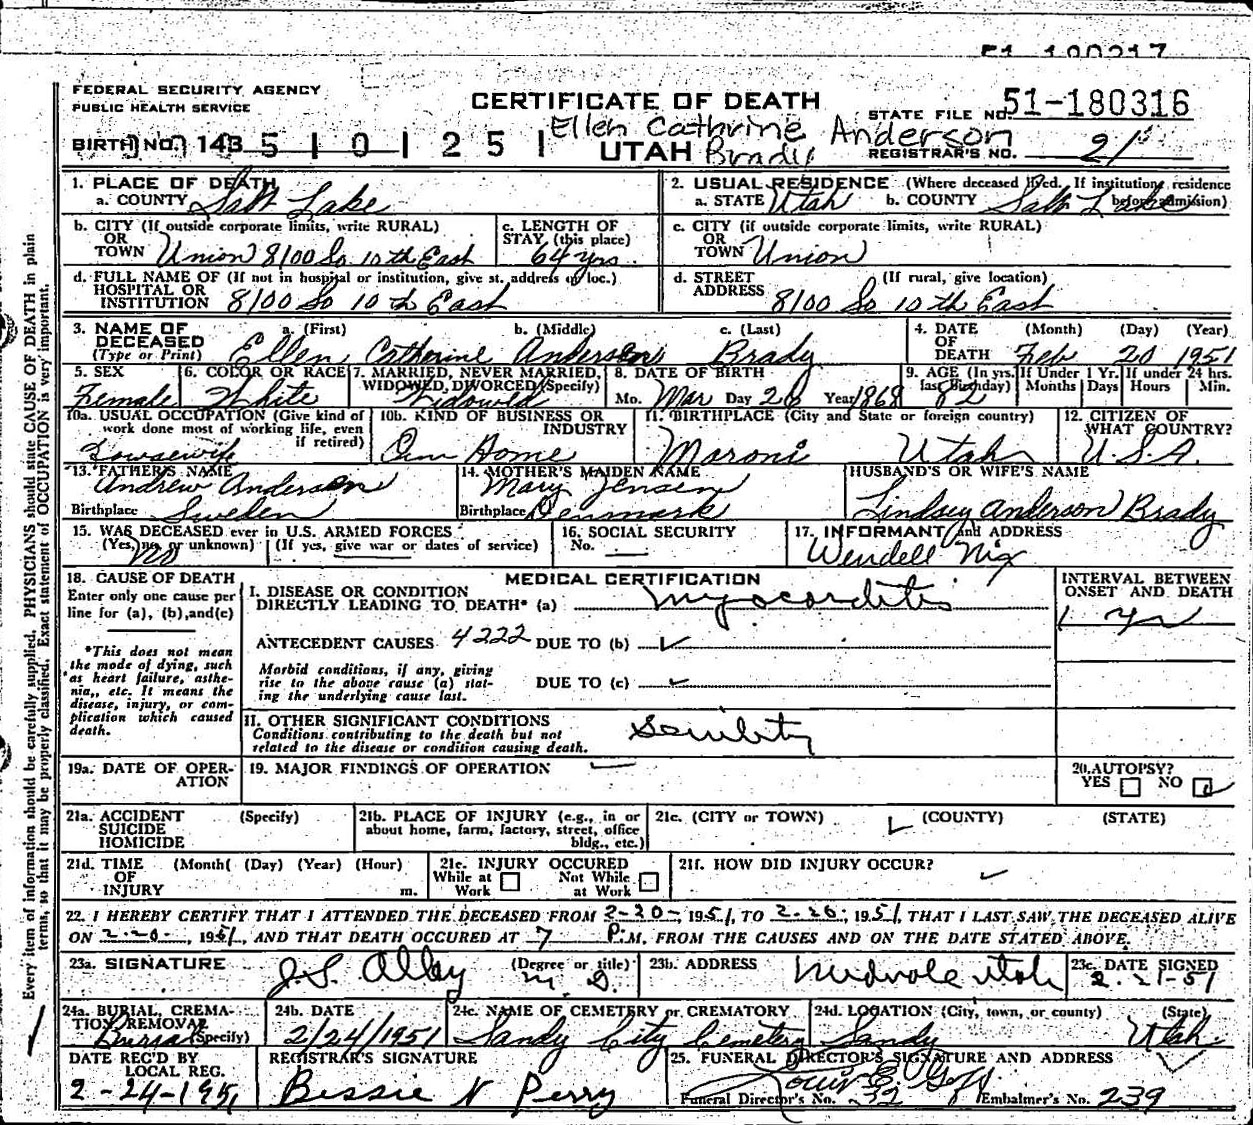 51-180317
FEDERAL SECURITY AGENCY
PUBLIC HEALTH SERVICE
CERTIFICATE OF DEATH
STATE FILE NO. 51-180316
Ellen Cathrine Anderson
BIRTH NO. 143 5 1 0 1 2 5 1
UTAH Brady
REGISTRAR'S NO. 21
1. PLACE OF DEATH
a. COUNTY Salt Lake
2. USUAL RESIDENCE (Where deceased lived. If institution, residence before admission)
a. STATE Utah b. COUNTY Salt Lake
b. CITY (If outside corporate limits, write RURAL)
OR
TOWN Union 8100 So 10th East
c. LENGTH OF
STAY (this place)
64 yrs.
c. CITY (if outside corporate limits, write RURAL)
OR
TOWN Union
d. FULL NAME OF (If not in hospital or institution, give st. address or loc.)
HOSPITAL OR
INSTITUTION 8100 So 10th East
d. STREET (If rural, give location)
ADDRESS 8100 So 10th East
3. NAME OF DECEASED
(Type or Print)
a. (First) b. (Middle) c. (Last)
Ellen Catherine Anderson Brady
4. DATE OF DEATH (Month) (Day) (Year)
Feb 20 1951
5. SEX
Female
6. COLOR OR RACE
White
7. MARRIED, NEVER MARRIED,
WIDOWED, DIVORCED (Specify)
Widowed
8. DATE OF BIRTH
Mo. Mar Day 20 Year 1868
9. AGE (In yrs. last Birthday) 82
If Under 1 Yr. Months Days
If under 24 hrs. Hours Min.
10a. USUAL OCCUPATION (Give kind of
work done most of working life, even
if retired)
Housewife
10b. KIND OF BUSINESS OR
INDUSTRY
Own Home
11. BIRTHPLACE (City and State or foreign country)
Moroni Utah
12. CITIZEN OF
WHAT COUNTRY?
U.S.A.
13. FATHER'S NAME
Andrew Anderson
Birthplace Sweden
14. MOTHER'S MAIDEN NAME
Mary Jensen
Birthplace Denmark
HUSBAND'S OR WIFE'S NAME
Lindsey Anderson Brady
15. WAS DECEASED ever in U.S. ARMED FORCES
(Yes, no, or unknown) (If yes, give war or dates of service)
No
16. SOCIAL SECURITY
No.
17. INFORMANT and ADDRESS
Wendell Nix
18. CAUSE OF DEATH
Enter only one cause per
line for (a), (b), and (c)
*This does not mean
the mode of dying, such
as heart failure, asthe-
nia,, etc. It means the
disease, injury, or com-
plication which caused
death.
MEDICAL CERTIFICATION
I. DISEASE OR CONDITION
DIRECTLY LEADING TO DEATH* (a) Myocarditis
ANTECEDENT CAUSES 4222 DUE TO (b)
Morbid conditions, if any, giving
rise to the above cause (a) stat-
ing the underlying cause last.
DUE TO (c)
II. OTHER SIGNIFICANT CONDITIONS
Conditions contributing to the death but not
related to the disease or condition causing death.
Senility
INTERVAL BETWEEN
ONSET AND DEATH
1 yr
19a. DATE OF OPER-
ATION
19. MAJOR FINDINGS OF OPERATION
20. AUTOPSY?
YES NO
21a. ACCIDENT (Specify)
SUICIDE
HOMICIDE
21b. PLACE OF INJURY (e.g., in or
about home, farm, factory, street, office
bldg., etc.)
21c. (CITY or TOWN) (COUNTY) (STATE)
21d. TIME (Month( (Day) (Year) (Hour)
OF
INJURY m.
21e. INJURY OCCURED
While at Work Not While at Work
21f. HOW DID INJURY OCCUR?
22. I HEREBY CERTIFY THAT I ATTENDED THE DECEASED FROM 2-20-, 1951, TO 2-20, 1951, THAT I LAST SAW THE DECEASED ALIVE
ON 2-20-, 1951, AND THAT DEATH OCCURED AT 7 P.M. FROM THE CAUSES AND ON THE DATE STATED ABOVE.
23a. SIGNATURE (Degree or title)
J.S. Alley M.D.
23b. ADDRESS
Midvale Utah
23c. DATE SIGNED
2-21-51
24a. BURIAL, CREMA-
TION, REMOVAL
(Specify) Burial
24b. DATE
2/24/1951
24c. NAME OF CEMETERY or CREMATORY
Sandy City Cemetery
24d. LOCATION (City, town, or county) (State)
Sandy Utah
DATE REC'D BY
LOCAL REG.
2-24-1951
REGISTRAR'S SIGNATURE
Bessie N Perry
25. FUNERAL DIRECTOR'S SIGNATURE AND ADDRESS
Louis E Goff
Funeral Director's No. 32 Embalmer's No. 239
Every item of information should be carefully supplied. PHYSICIANS should state CAUSE OF DEATH in plain
terms, so that it may be properly classified. Exact statement of OCCUPATION is very important.